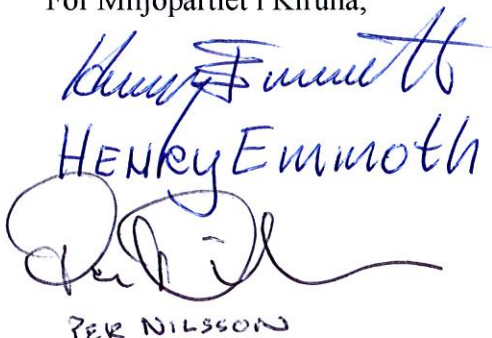 För Miljöpartiet i Kiruna,
Henry Emmoth
HENRY Emmoth
Per Nilsson
PER NILSSON